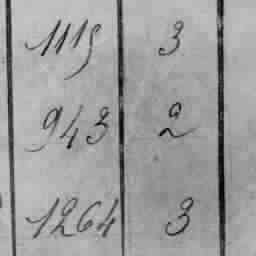 1115 3
943 2
1264 3